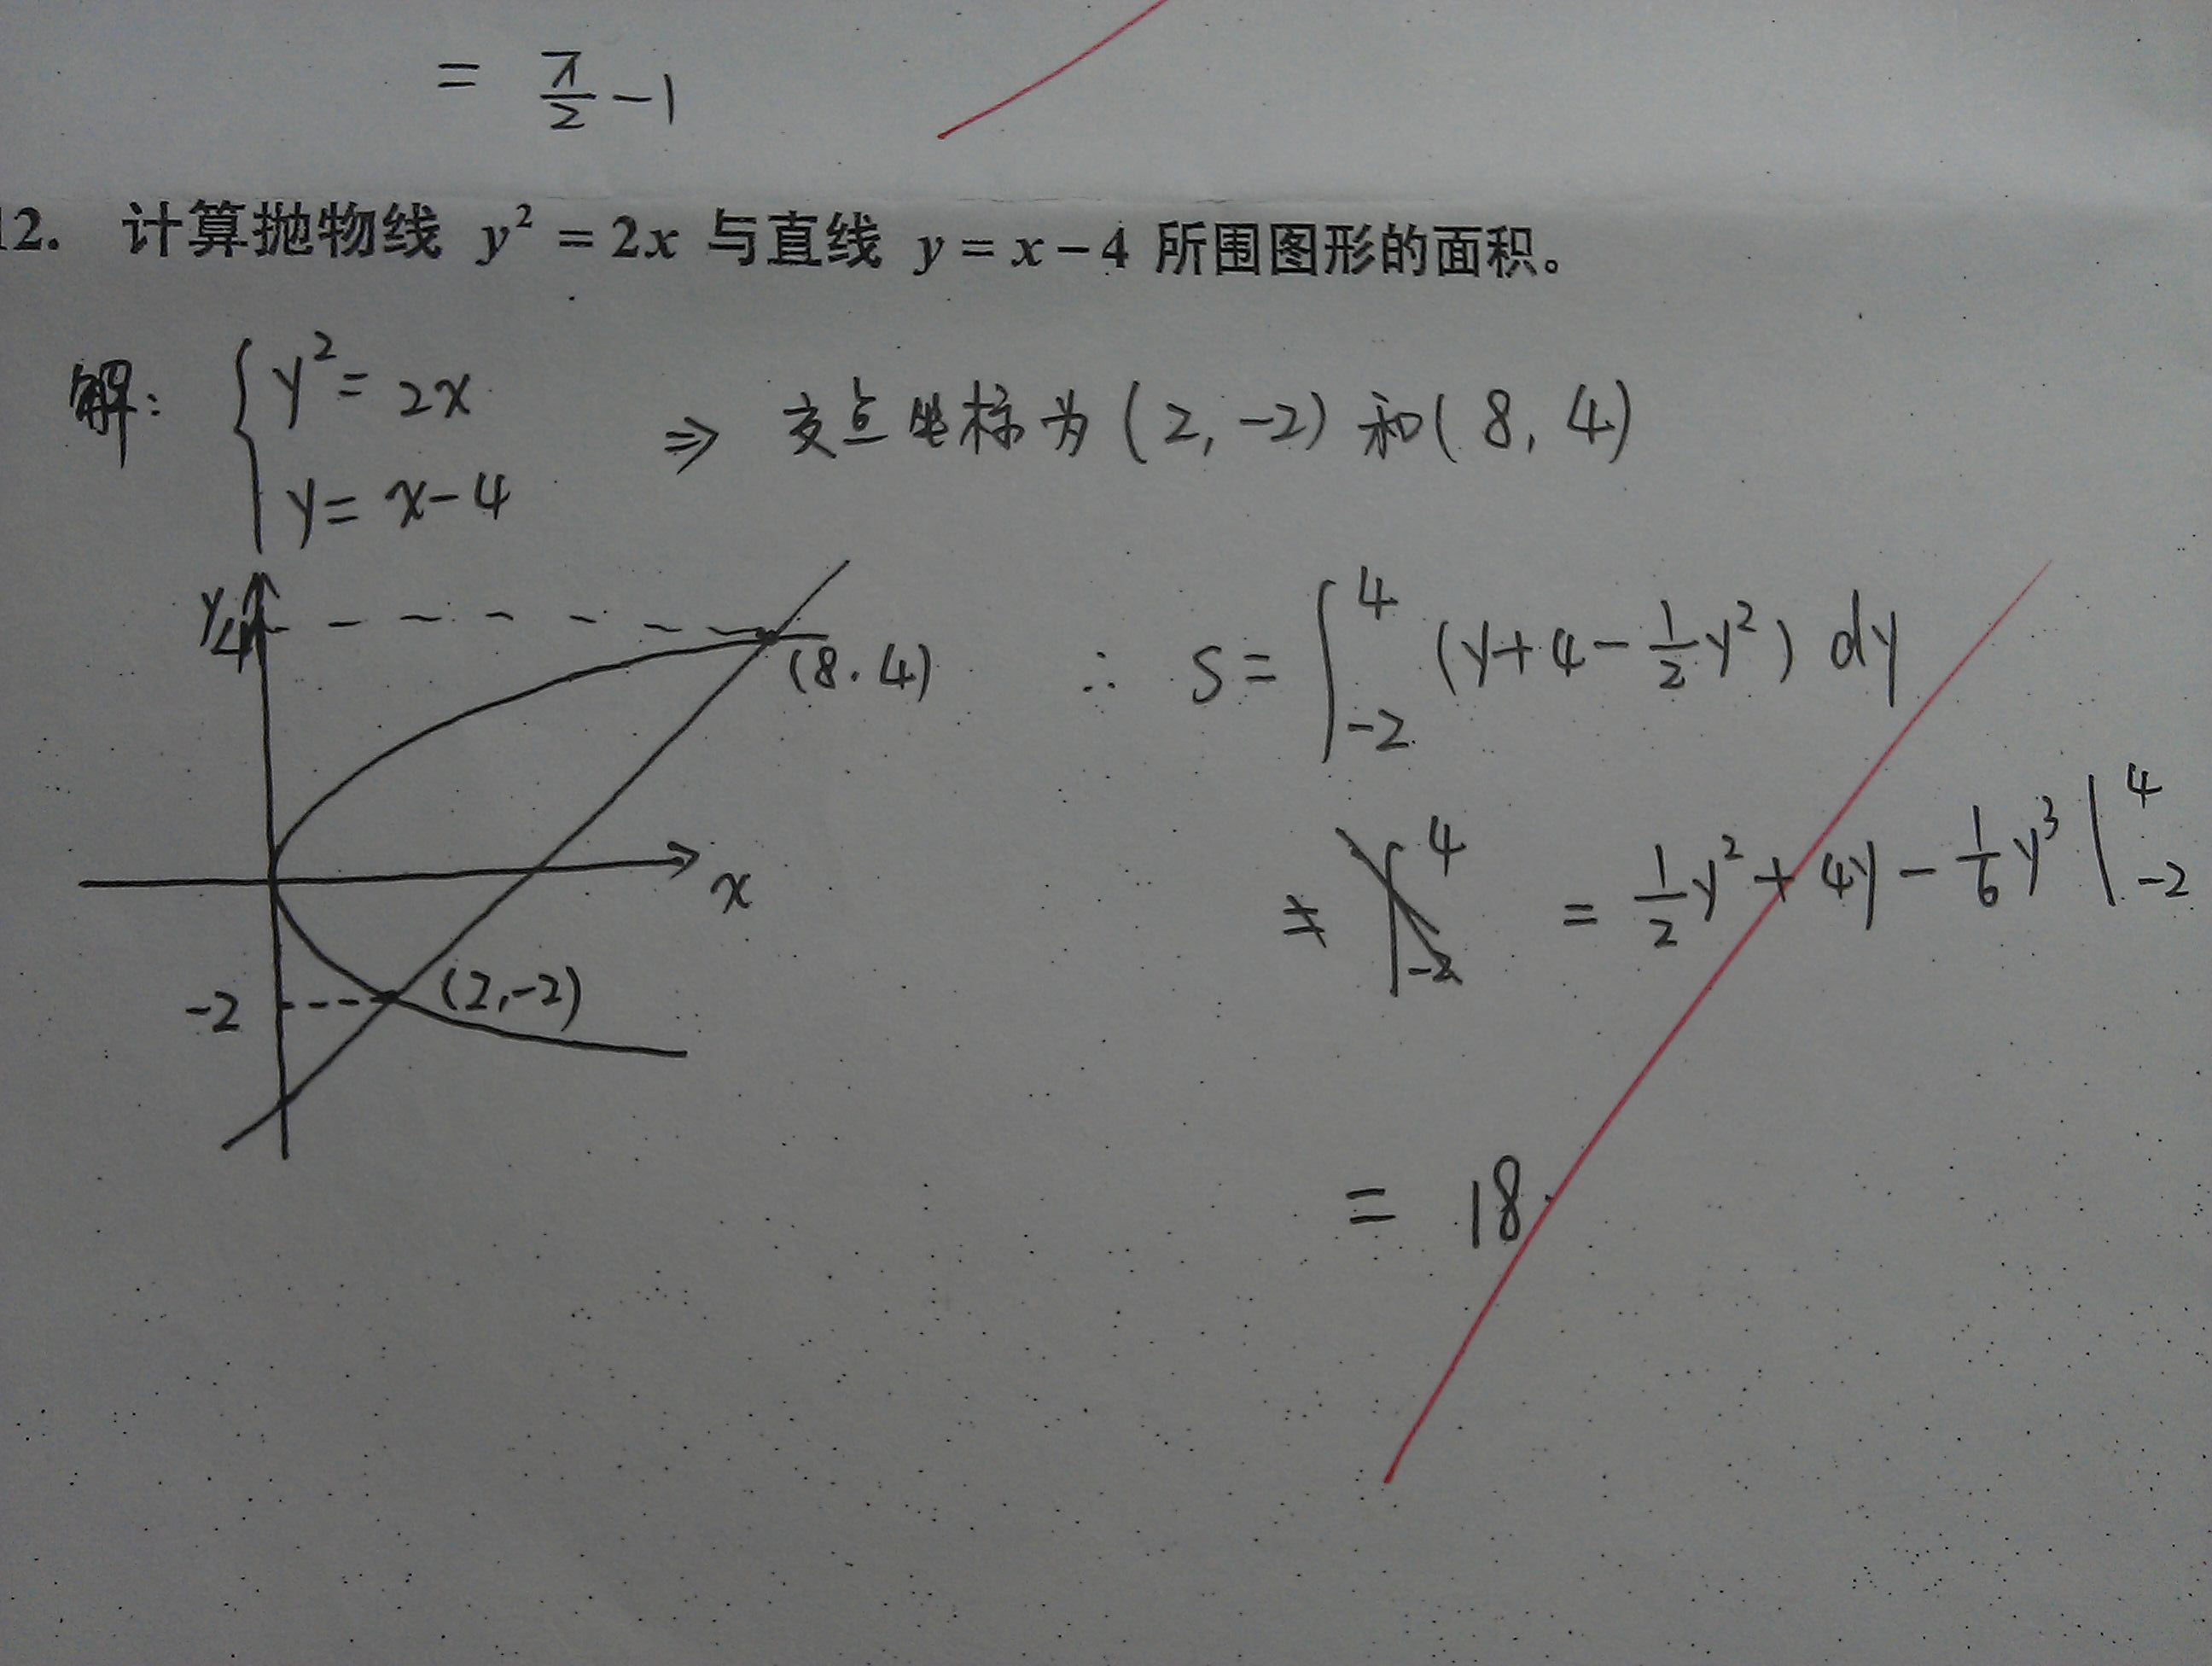 = π/2 - 1
12. 计算抛物线 y² = 2x 与直线 y = x - 4 所围图形的面积。
解: { y² = 2x
y = x - 4
⇒ 交点坐标为 (2, -2) 和 (8, 4)
y
4
(8. 4)
x
-2
(2, -2)
∴ S = ∫_{-2}^{4} (y + 4 - 1/2 y²) dy
= 1/2 y² + 4y - 1/6 y³ |_{-2}^{4}
= 18.